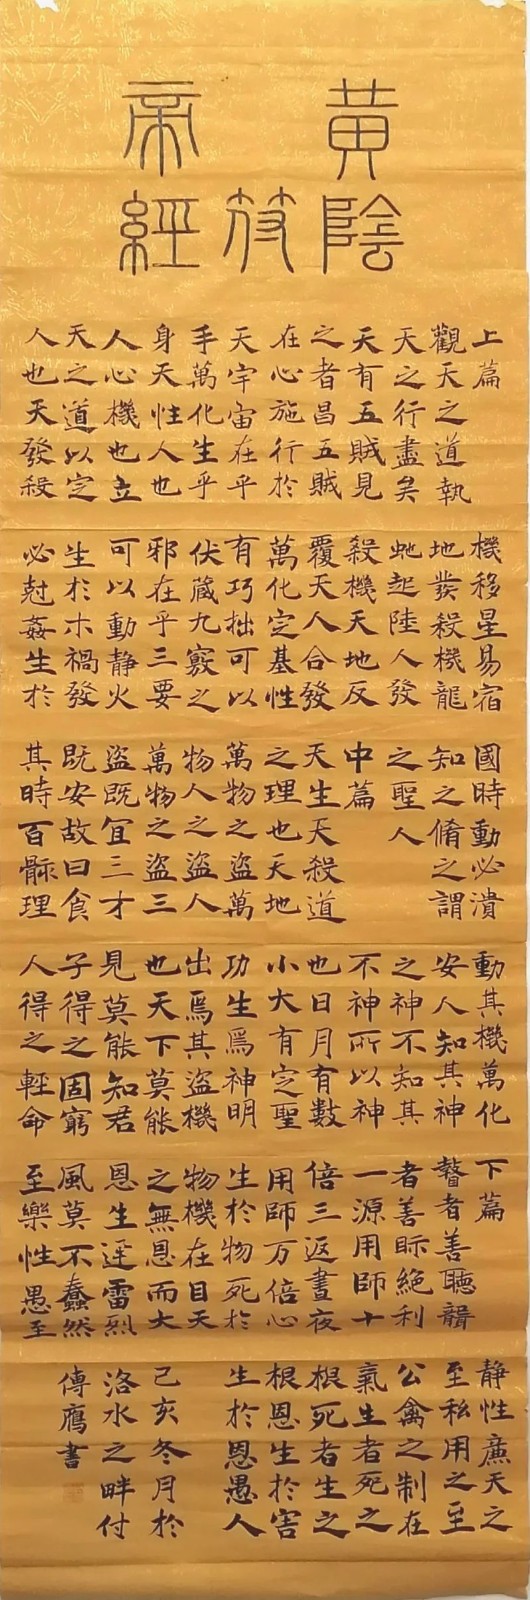 黄帝
陰符經
上篇
觀天之道執
天之行盡矣
天有五賊見
之者昌五賊
在心施行於
天宇宙在乎
手萬化生乎
身天性人也
人心機也立
天之道以定
人也天發殺
機移星易宿
地發殺機龍
虵起陸人發
殺機天地反
覆天人合發
萬化定基性
有巧拙可以
伏藏九竅之
邪在乎三要
可以動静火
生於木禍發
必尅姦生於
國時動必潰
知之脩之謂
之聖人
中篇
天生天殺道
之理也天地
萬物之盗萬
物人之盗人
萬物之盗三
盗既宜三才
既安故曰食
其時百骸理
動其機萬化
安人知其神
之神不知其
不神所以神
也日月有數
小大有定聖
功生焉神明
出焉其盗機
也天下莫能
見莫能知君
子得之固窮
人得之輕命
下篇
瞽者善聽聾
者善眎絶利
一源用師十
倍三返晝夜
用師万倍心
生於物死於
物機在目天
之無恩而大
恩生迅雷烈
風莫不蠢然
至樂性愚至
静性廉天之
至私用之至
公禽之制在
氣生者死之
根死者生之
根恩生於害
生於恩愚人
己亥冬月於
洛水之畔付
傅鷹書